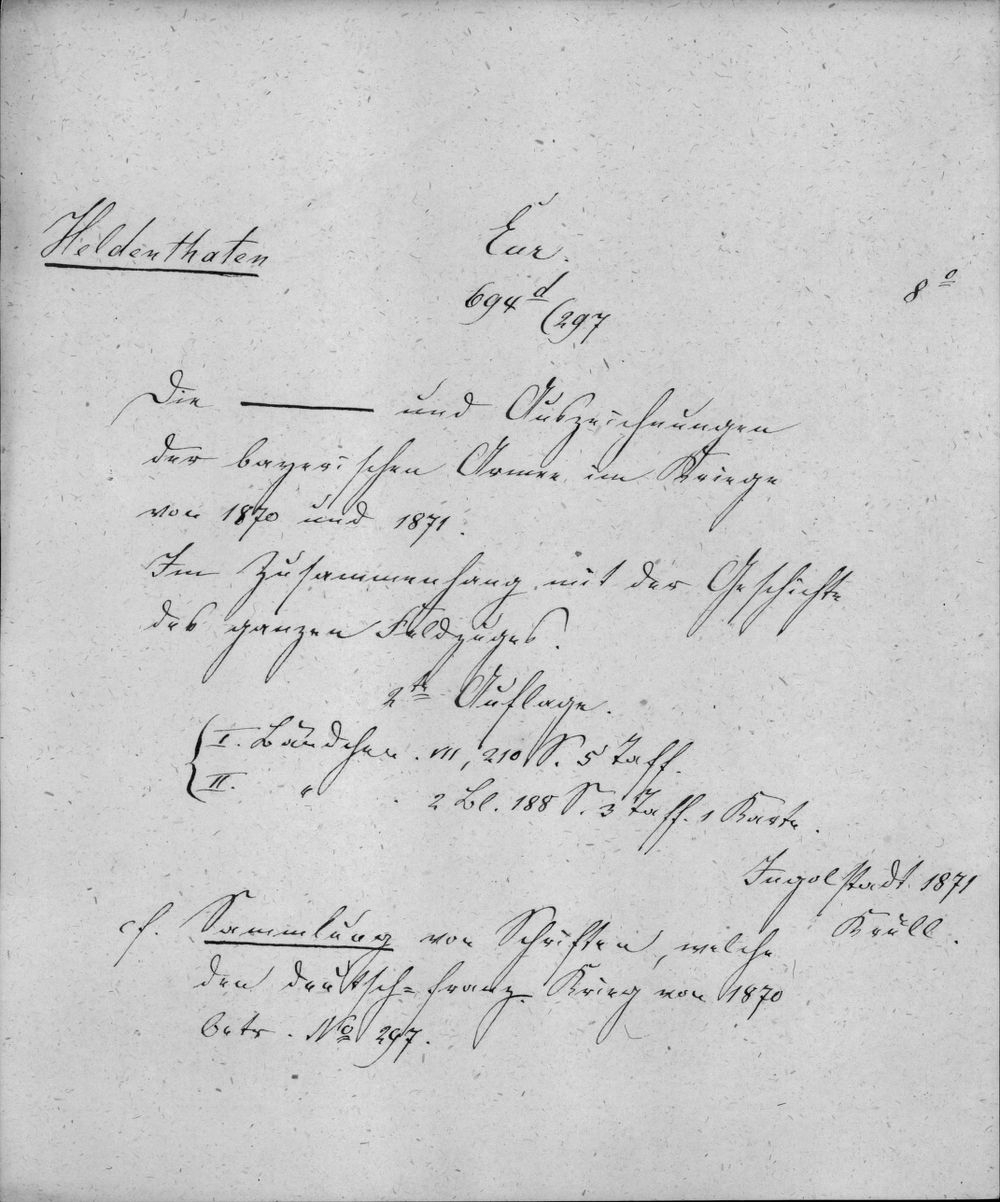 Heldenthaten
Eur.
694 d (297
8 o
Die ——— und Auszeichnungen
der bayerischen Armee im Kriege
von 1870 und 1871.
Im Zusammenhang mit der Geschichte
des ganzen Feldzuges.
2te Auflage.
I. Bändchen. VII, 210 S. 5 Taff.
II. " . 2 Bl. 188 S. 3 Taff. 1 Karte.
Ingolstadt 1871
Krüll.
cf. Sammlung von Schriften, welche
den deutsch-franz. Krieg von 1870
betr. No 297.